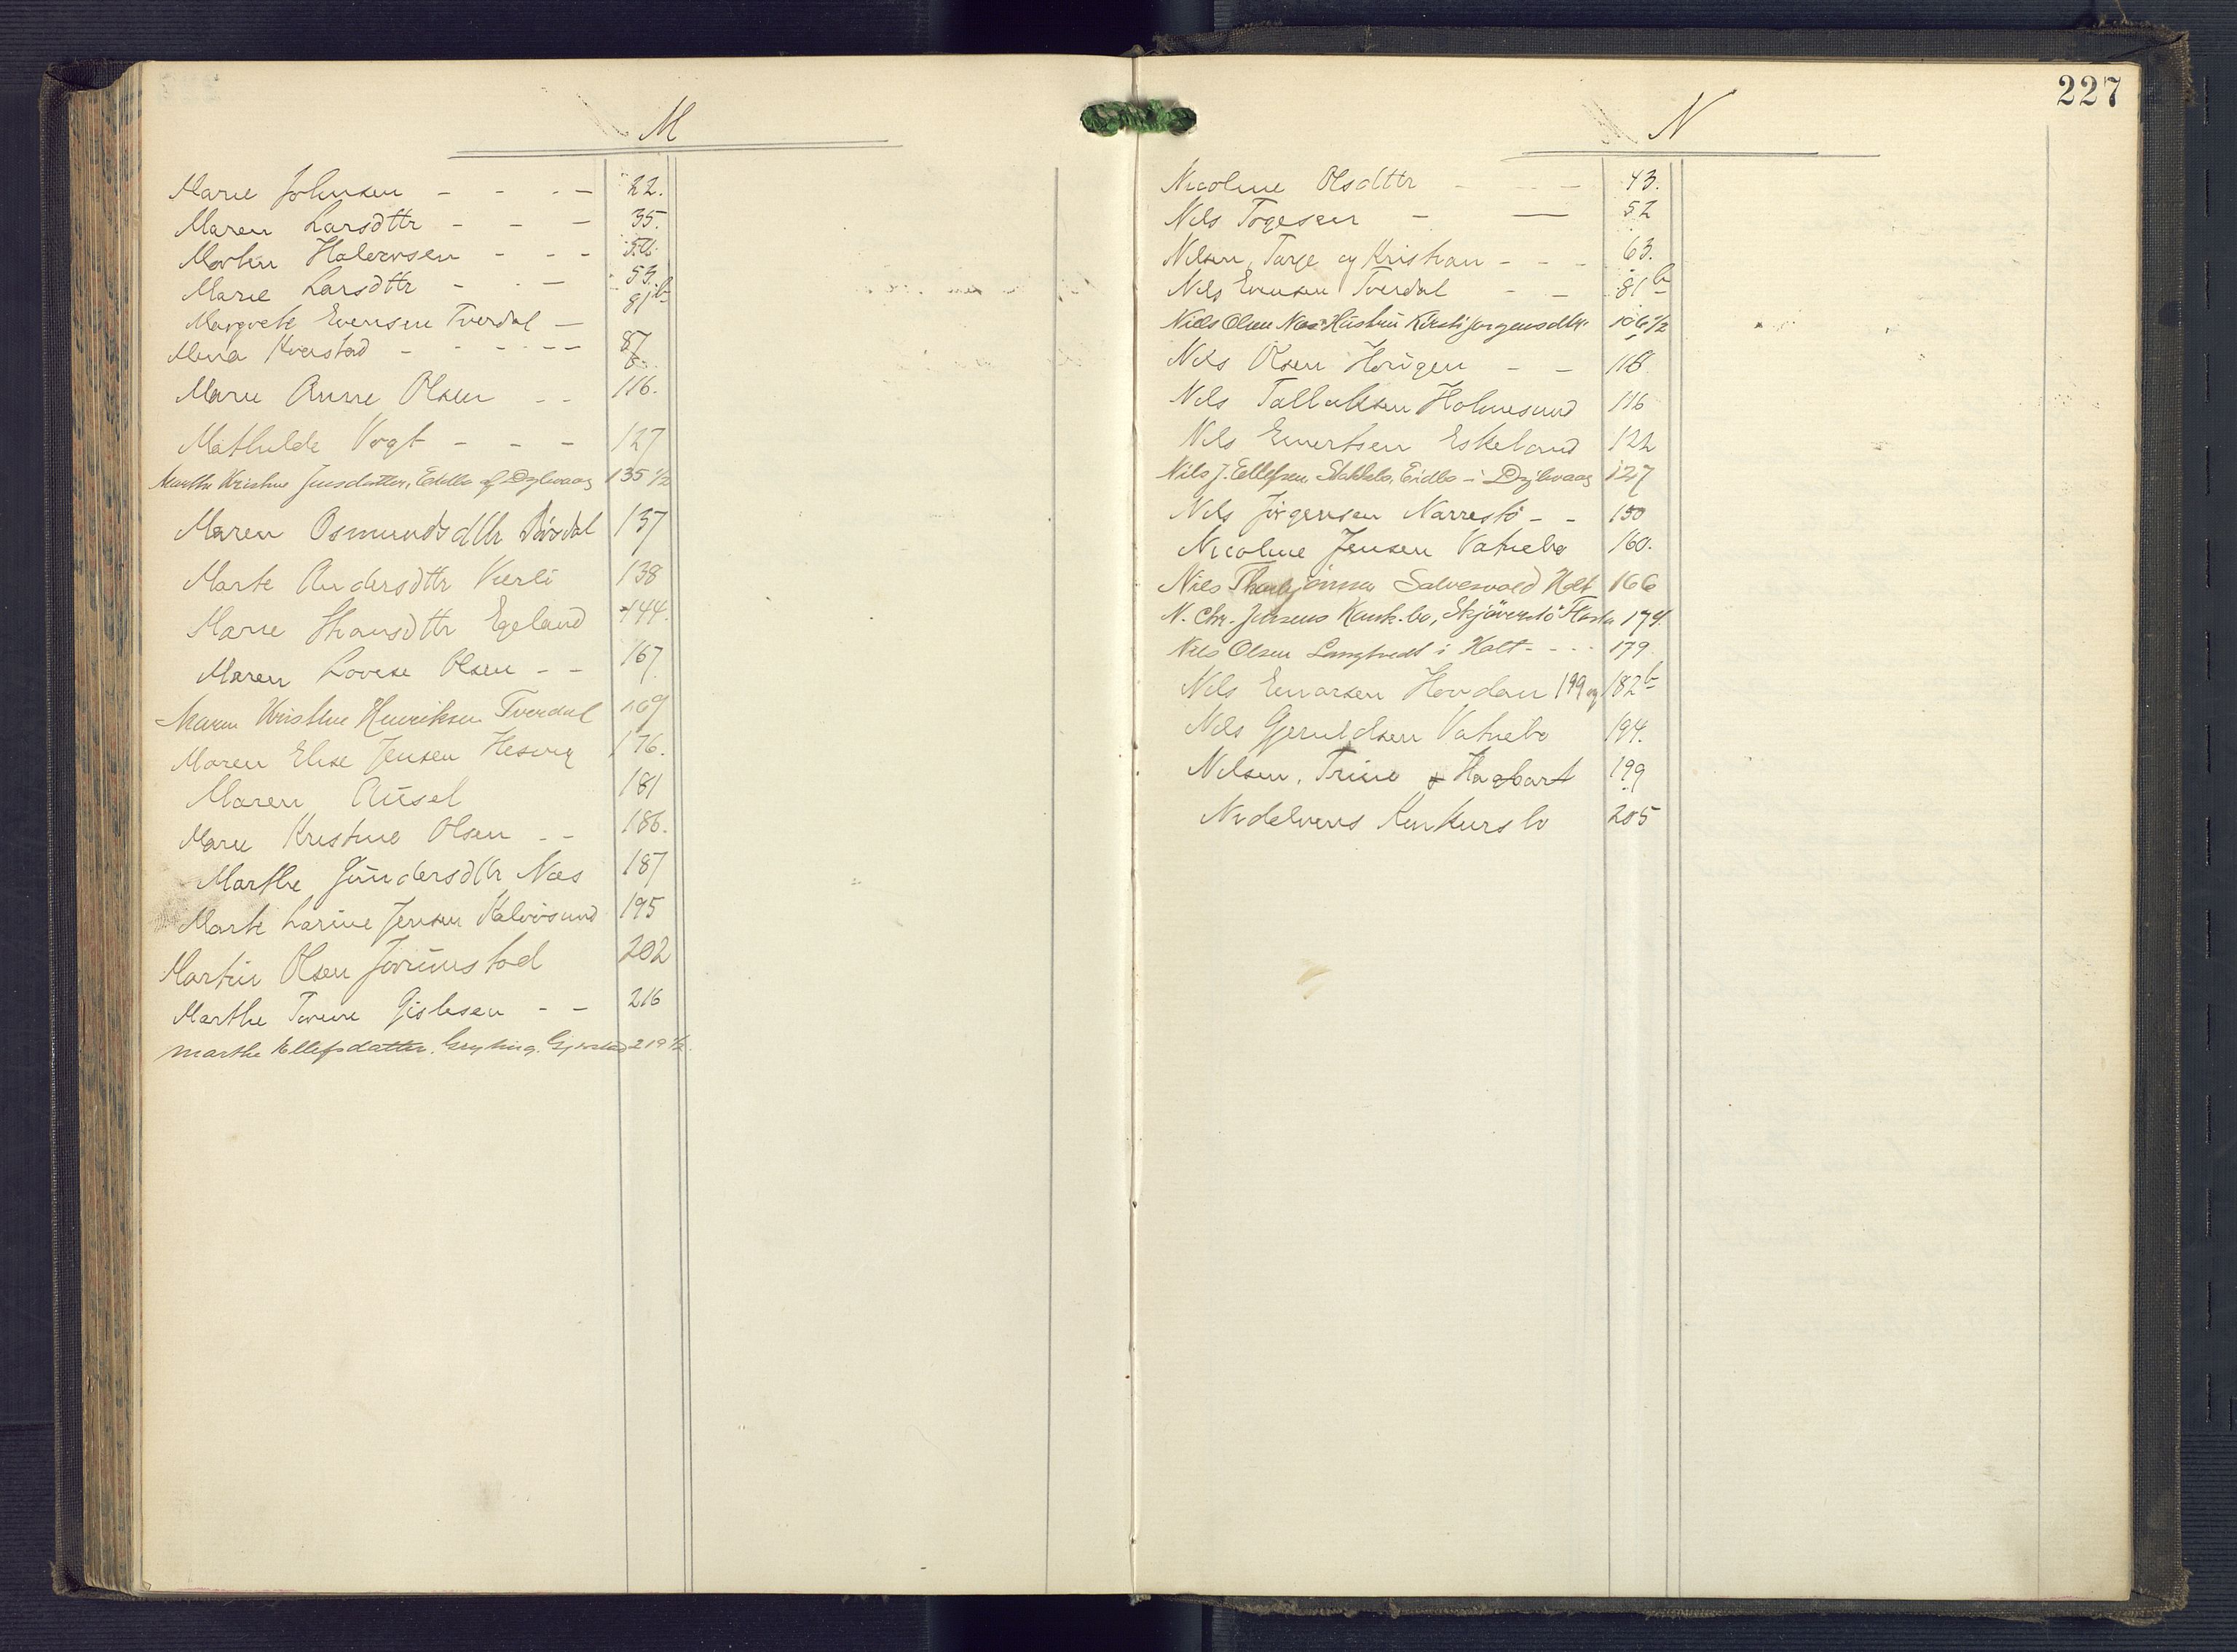 M
Marie Johnsen - - - - 22.
Maren Larsdttr - - - 35.
Halvorsen - - -
Marie Larsdttr - - - 53.
Margrete Evensen Tverdal - 81 b
Kverstad - - - - - 87
Marie Anne Olsen - - 116.
Mathilde Vogt - - - 127
Marthe Kristine Jensdatter, 135 1/2
Maren Osmundsdttr 137
Marte Andersdttr Vierli 138
Marie Hansdttr Egeland 144.
Maren Lovise Olsen - - 167
Maren Kristine Henriksen Tverdal 169
Maren Elise Jensen 176.
Maren Ausel 181
Marie Kristine Olsen - - 186.
Marthe Gundersdttr Næs 187
Marte Larine Jensen Kalvøsund 195
Martin Olsen Jorunstad 202
Marthe Tomine Gislesen - - 216
Marthe Ellefsdatter. Gryting. Gjerstad 219 1/2
227
N
Nicoline Olsdttr - - - - 43.
Nils Togesen - - 52
Nilsen, Targe og Kristian - - - 63.
Nils Evensen Tverdal - - 81 b
Niels Olsen Næs Hustru Kirsti Jørgensdtr. 106 1/2
Nils Olsen - - 118
Nils Tallaksen Holmesund 116
Nils Evertsen Eskeland 122
Nils J. Ellefsen Eidbo i Dybvaag 127
Nils Jørgensen Narrestø - - 150
Nicoline Jensen Vatnebo 160.
Nils Salvesvold Holt 166
N. Chr. Jensens Konk.bo, Flosta 174.
Nils Olsen Langtvedt i Holt - - - - 179.
Nils Einarsen Hovdan 199 og 182 b
Nils Gjeruldsen Vatnebo 194.
Nilsen, Trine & Hagbart 199
Nidelvens Konkursbo 205